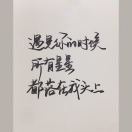 遇见你的时候
所有星星
都落在我头上